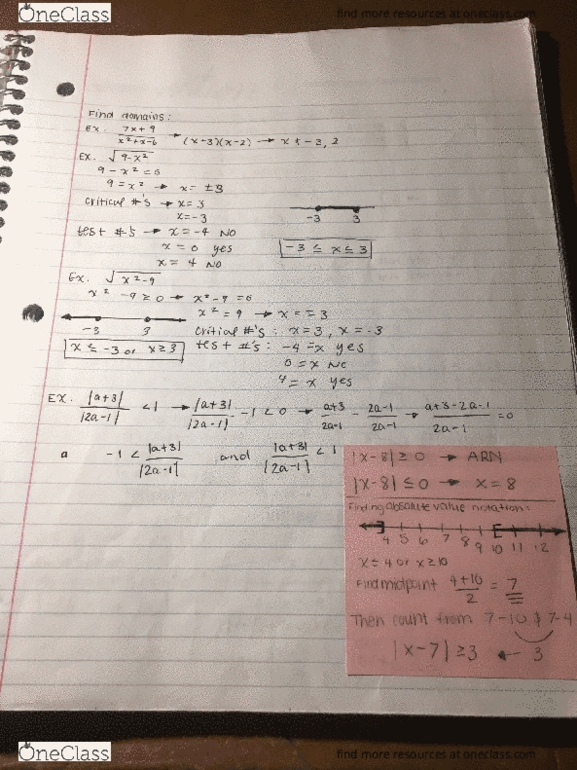 OneClass
find more resources at oneclass.com
Find domains:
Ex. 7x+9 / x²+x-6 → (x-3)(x-2) → x ≠ -3, 2
Ex. √9-x²
9 - x² = 0
9 = x² → x = ±3
critical #'s → x = 3
x = -3
-3 3
test #'s → x = -4 NO
x = 0 yes
-3 ≤ x ≤ 3
x = 4 NO
Ex. √x²-9
x² -9 ≥ 0 → x²-9 = 0
x² = 9 → x = ± 3
-3 3
critical #'s: x = 3, x = -3
x ≤ -3 or x ≥ 3
test #'s: -4 = x yes
0 = x NO
4 = x yes
EX. |a+3| / |2a-1| < 1 → |a+3| / |2a-1| - 1 < 0 → a+3 / 2a-1 - 2a-1 / 2a-1 → a+3-2a-1 / 2a-1 = 0
a -1 < |a+3| / |2a-1| and |a+3| / |2a-1| < 1
|x-8| ≥ 0 → ARN
|x-8| ≤ 0 → x = 8
Finding absolute value notation:
4 5 6 7 8 9 10 11 12
x ≤ 4 or x ≥ 10
Find midpoint 4+10 / 2 = 7
Then count from 7-10 & 7-4
|x-7| ≥ 3 ← 3
OneClass
find more resources at oneclass.com